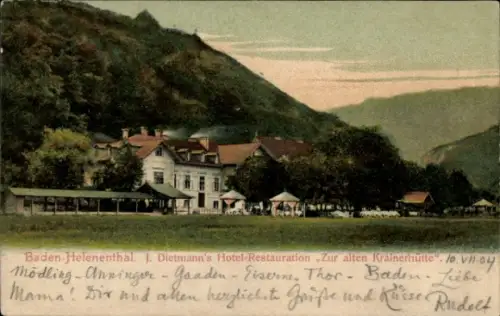 Baden-Helenenthal. J. Dietmann's Hotel-Restauration „Zur alten Krainerhütte". 10.VII.04
Mödling-Anninger-Gaaden-Eisernes Thor-Baden-Liebe
Mama! Dir und allen herzlichste Grüße und Küsse Rudolf